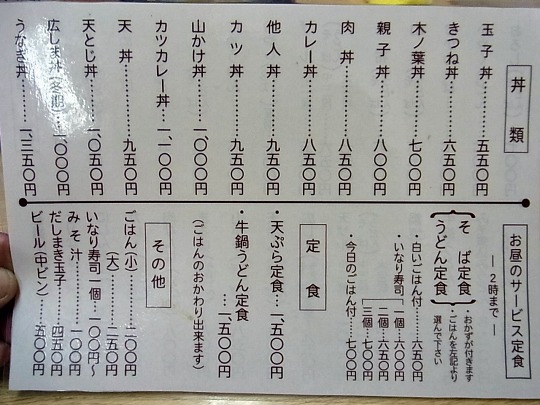 丼類
玉子丼………五五〇円
きつね丼………六五〇円
木ノ葉丼………七〇〇円
親子丼………八〇〇円
肉丼………八五〇円
カレー丼………八五〇円
他人丼………九五〇円
カツ丼………九五〇円
山かけ丼………一、〇〇〇円
カツカレー丼………一、一〇〇円
天丼………九五〇円
天とじ丼………一、〇五〇円
広しま丼(冬期)…一、〇〇〇円
うなぎ丼………一、三五〇円
お昼のサービス定食
―2時まで―
そば定食
うどん定食
・おかずが付きます
・ごはんを左記より
選んで下さい
・白いごはん付………六五〇円
・いなり寿司
一個…六〇〇円
二個…六五〇円
三個…七〇〇円
・今日のごはん付……七〇〇円
定食
・天ぷら定食…一、五〇〇円
・牛鍋うどん定食
…一、五〇〇円
(ごはんのおかわり出来ます)
その他
ごはん(小)………二〇〇円
(大)………二五〇円
いなり寿司一個…一〇〇円～
みそ汁………一〇〇円
だしまき玉子……四五〇円
ビール(中ビン)…五〇〇円